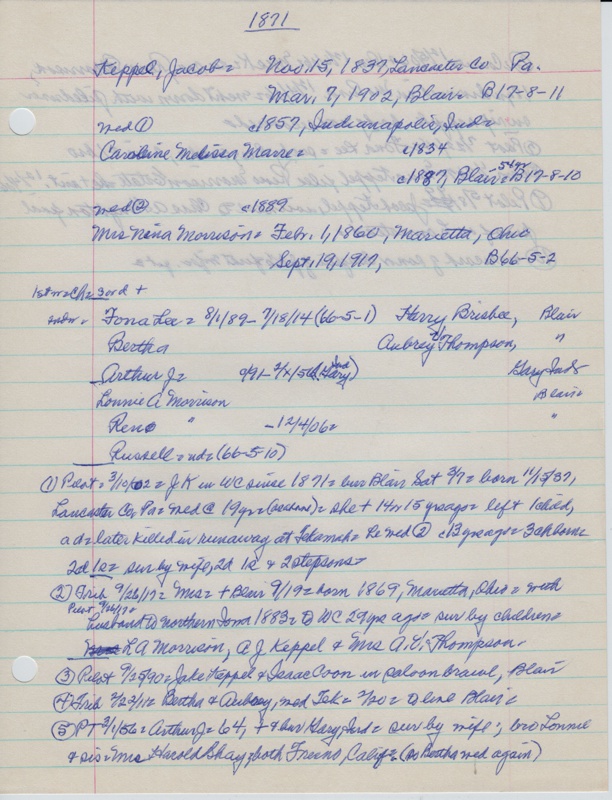 1871
Keppel, Jacob = Nov. 15, 1837, Lancaster Co Pa.
Mar. 7, 1902, Blair = B17-8-11
med ① c1857, Indianapolis, Ind =
Caroline Melissa Marre = c1834
c1887, Blair = 54yr B17-8-10
med ② c1889
Mrs Nina Morrison = Febr. 1, 1860, Marietta, Ohio
Sept. 19, 1917, B66-5-2
1st m = Ch = 3 or d +
2nd m = Fona Lee = 8/1/89 - 7/18/14 (66-5-1) Harry Brisbee, Blair
Bertha Aubrey Thompson, "
Arthur J = 9/91 - 2/x/56 (Gary Ind) Gary Ind =
Lonnie A Morrison Blair =
Reno " - 12/4/06 = "
Russell = nd = (66-5-10)
① Pilot = 3/10/02 = J.K in WC since 1871 = bur Blair Sat 3/7 = born 11/15/37,
Lancaster Co, Pa = med @ 19yr = = she + 14 or 15 yrs ago = left 1 child,
a d = later killed in runaway at Tekamah = Re med ② c13 yrs ago = 3 ch born
2d 1s = sur by wife, 2d 1s & 2 stepsons =
② Trib 9/26/17 = Mrs = + Blair 9/19 = born 1869, Marietta, Ohio = with
Pilot 9/26/17 =
husband to northern Iowa 1883 = to WC 29 yrs ago = sur by children =
L A Morrison, A J Keppel & Mrs A. V. Thompson.
③ Pilot 9/25/90 = Jake Keppel & Isaac Coon in saloon brawl, Blair
④ Trib 2/22/12 Bertha & Aubrey, med Tek = 2/20 = to live Blair =
⑤ PT 3/1/56 = Arthur J = 64, + & bur Gary, Ind = sur by wife; bro Lonnie
& sis = Mrs Harold both Fresno, Calif = (so Bertha med again)